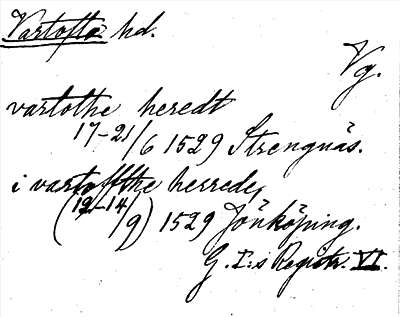 Vartofta hd.
Vg.
vartothe heredt
17-21/6 1529 Strengnäs.
i vartoffthe herrede,
(12-14/9) 1529 Jönköping.
G. I:s Registr. VI.